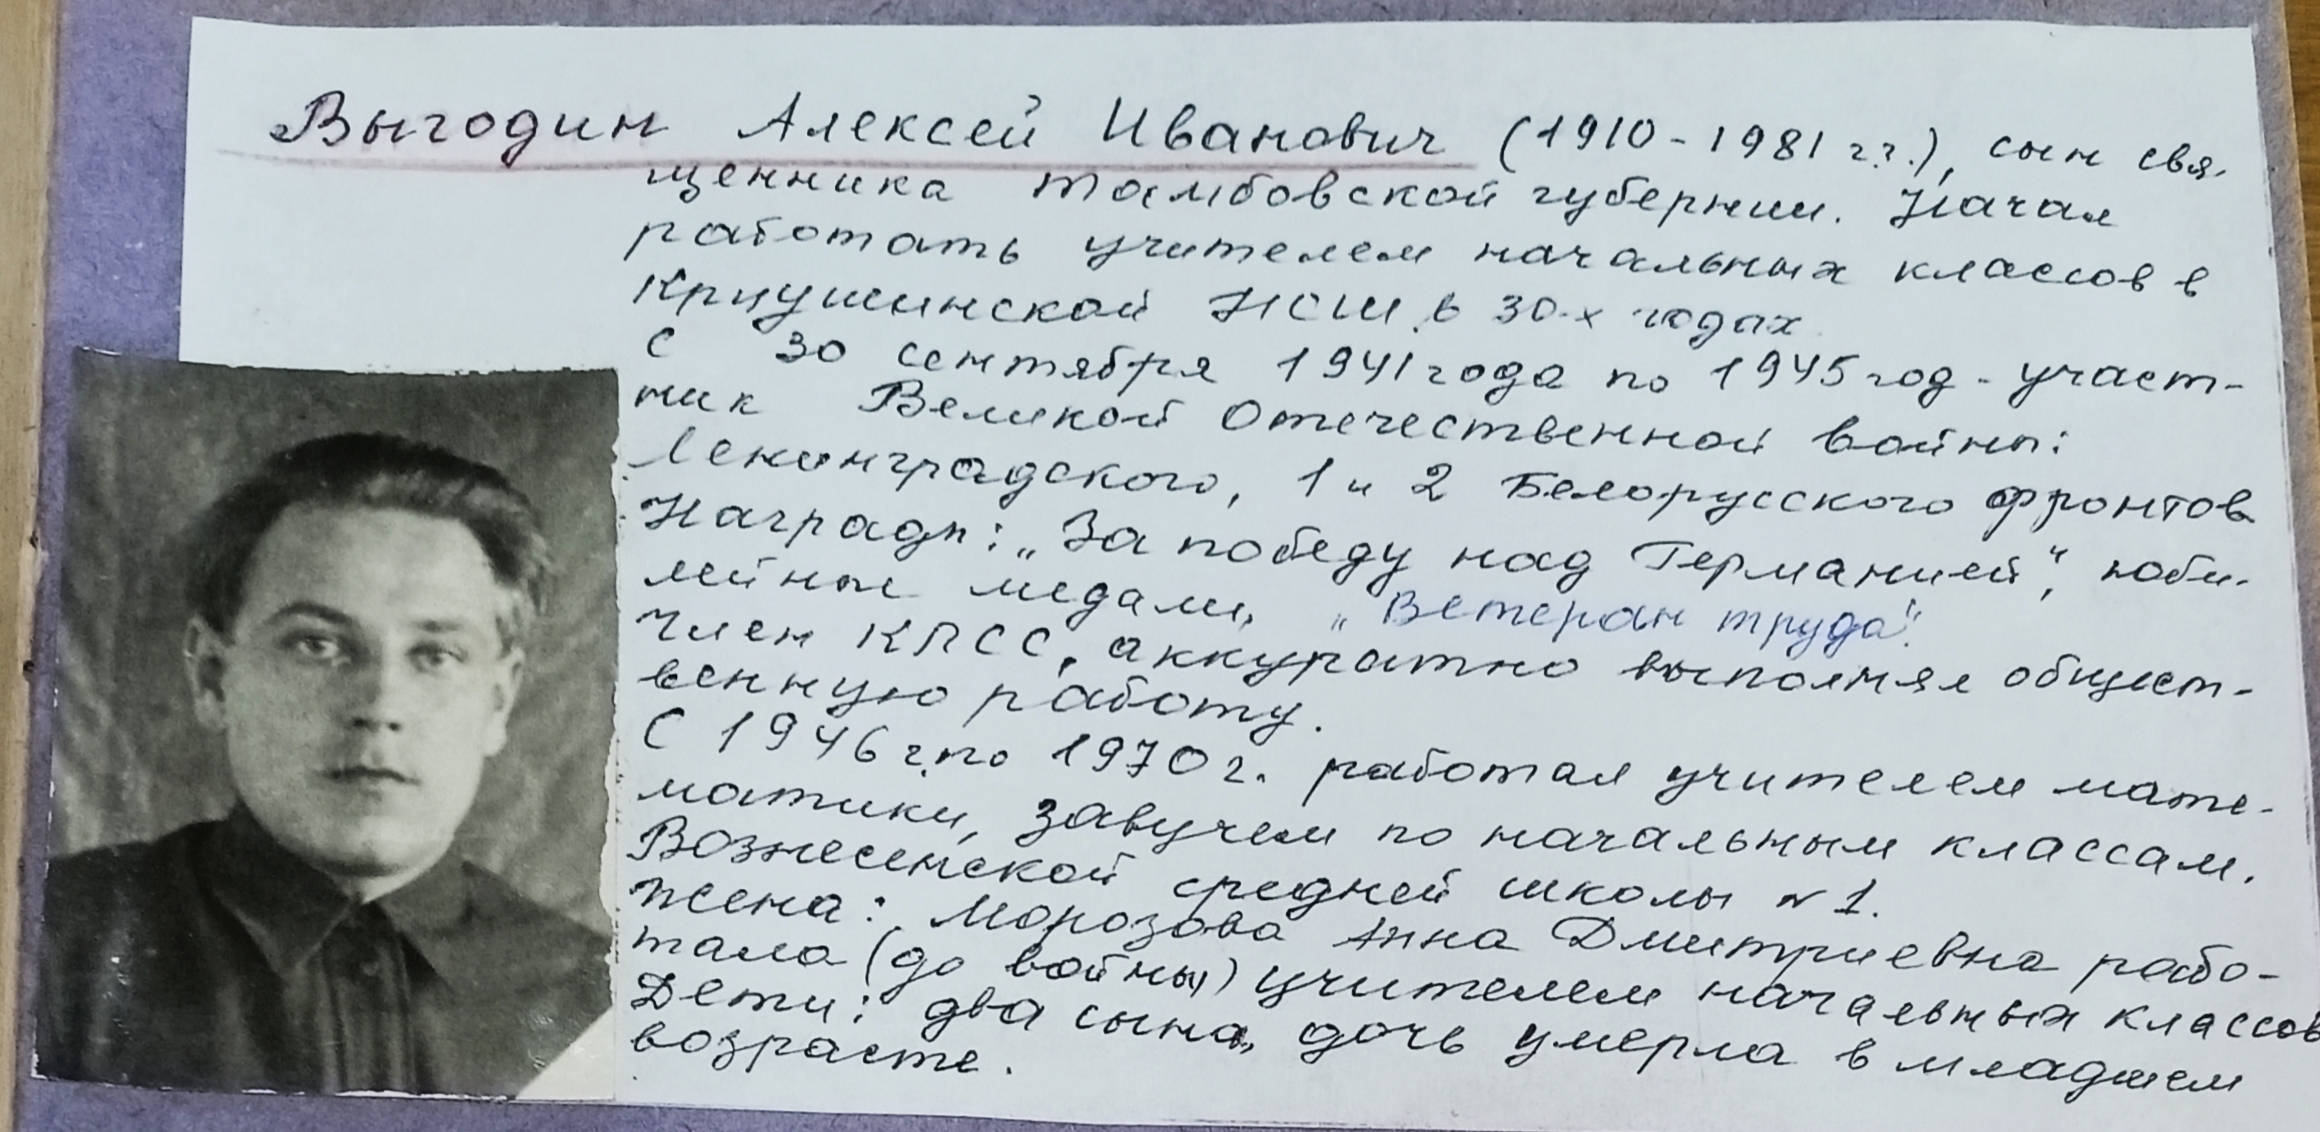 Выгодин Алексей Иванович (1910-1981 г.г.), сын свя-
щенника тамбовской губернии. Начал
работать учителем начальных классов в
Криушинской НСШ в 30-х годах.
С 30 сентября 1941 года по 1945 год - участ-
ник Великой Отечественной войны:
Ленинградского, 1 и 2 Белорусского фронтов
Награды: „За победу над Германией", юби-
лейные медали, „Ветеран труда".
Член КПСС, аккуратно выполнял общест-
венную работу.
С 1946 г. по 1970 г. работал учителем мате-
матики, завучем по начальным классам.
Вознесенской средней школы №1.
Жена: Морозова Анна Дмитриевна рабо-
тала (до войны) учителем начальных классов
Дети: два сына, дочь умерла в младшем
возрасте.